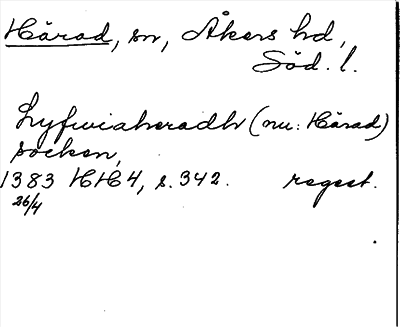 Härad, sn, Åkers hd,
Söd. l.
Lyfwiaheradh (nu: Härad)
socken,
1383 HH 4, s. 342. regest.
26/4